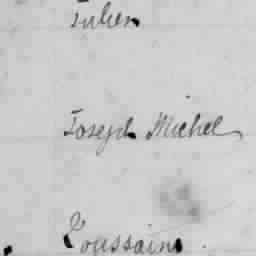 Julien
Joseph Michel
Toussaint.